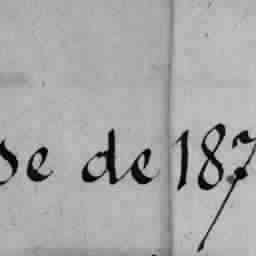 de de 187